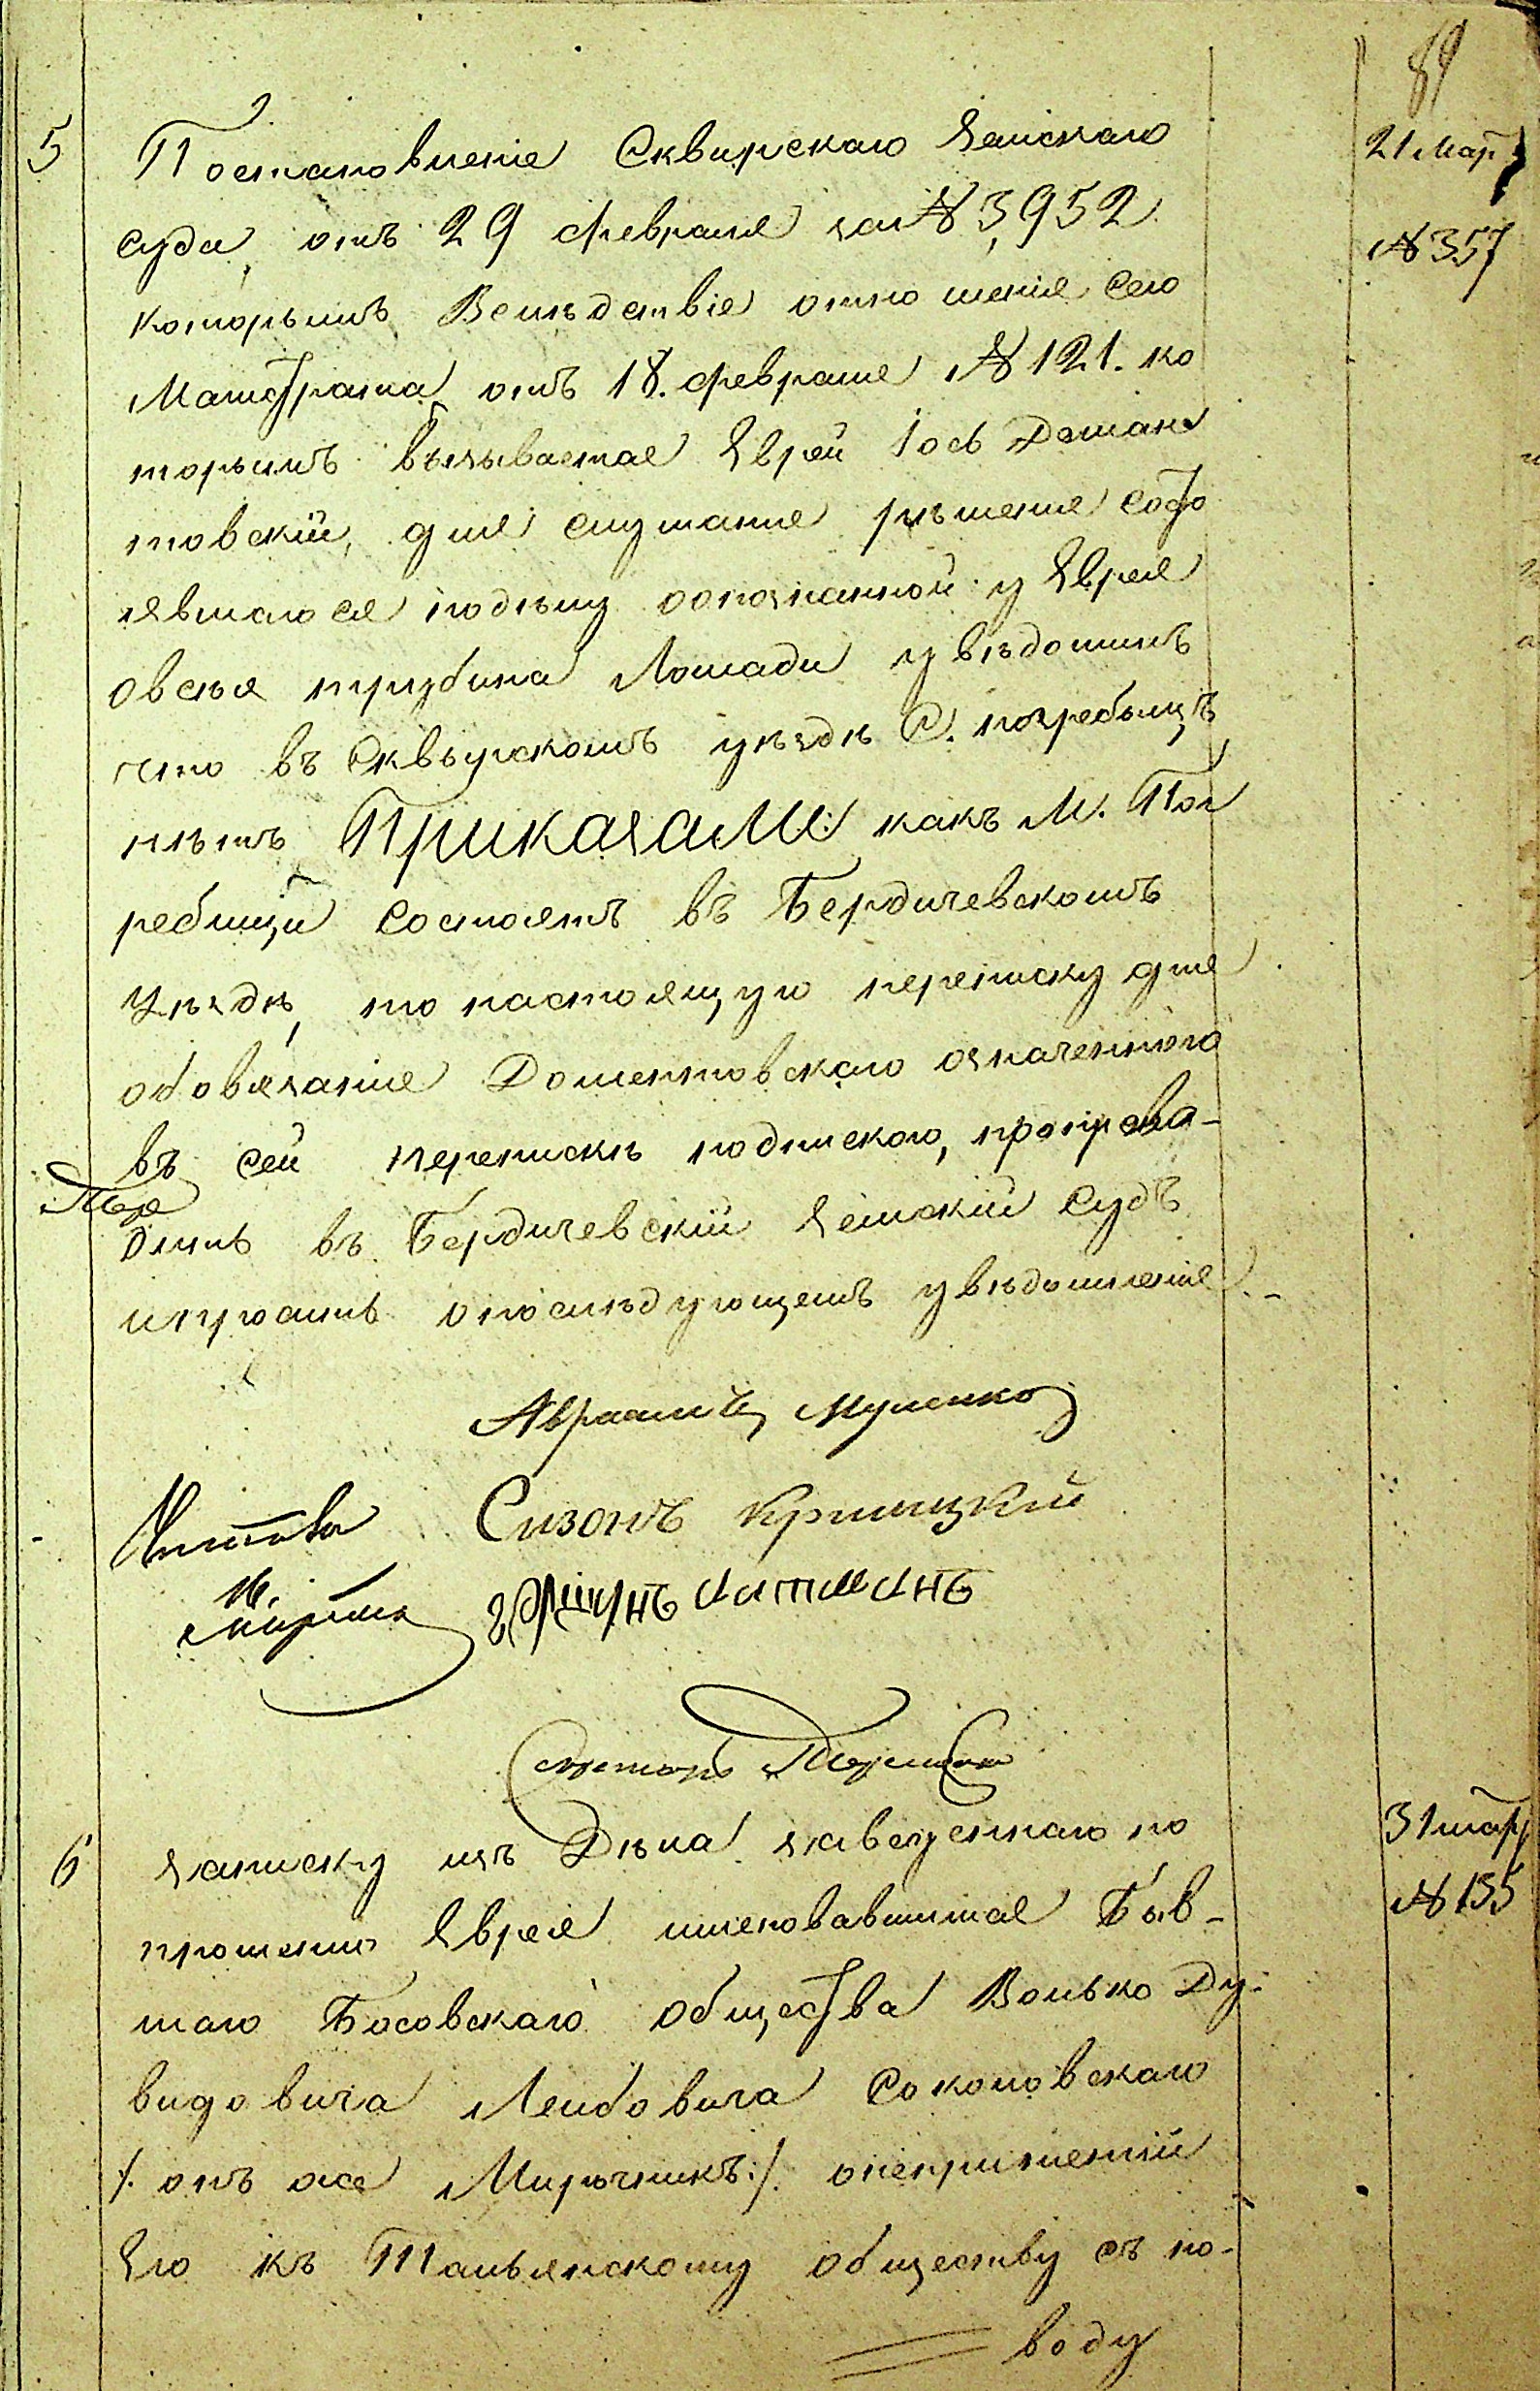 89
5
Постановленіе Сквирскаго Земскаго
21 Мар
суда, отъ 29 февраля за № 3,952
№ 357
которымъ Вслѣдствіе отношенія сего
Магістрата отъ 18. февраля № 121. ко
торымъ вызывается Еврей Іось Доман
товскій, для слушанія рѣшенія состо
явшагося подѣлу опознанной у Еврея
Овсѣя трубина Лошади увѣдомилъ
что въ Сквырскомъ уѣздѣ С. погребыщъ
нѣтъ Приказали: какъ М. Пог
ребищи состоятъ въ Бердичевскомъ
Уѣздѣ, то настоящую переписку для
обовязанія Доментовскаго означенного
въ сей перепискѣ подпискою, препрова-
дить въ Бердичевскій Земскій Судъ
ипросить опослѣдующемъ увѣдомленія.-
Авраамъ
Сизонъ Криницкій
16.
Марта
Секретарь
6
Записку изъ Дѣла заведеннаго по
31 мар
прошенію Еврея именовавшимся Быв-
№ 155
шаго Босовскаго общества Волько Ду-
видовича Лейбовича Соколовскаго
/. онъ же Мирочникъ:/. опепричтеніи
Его къ Тальянскому обществу съ по-
воду